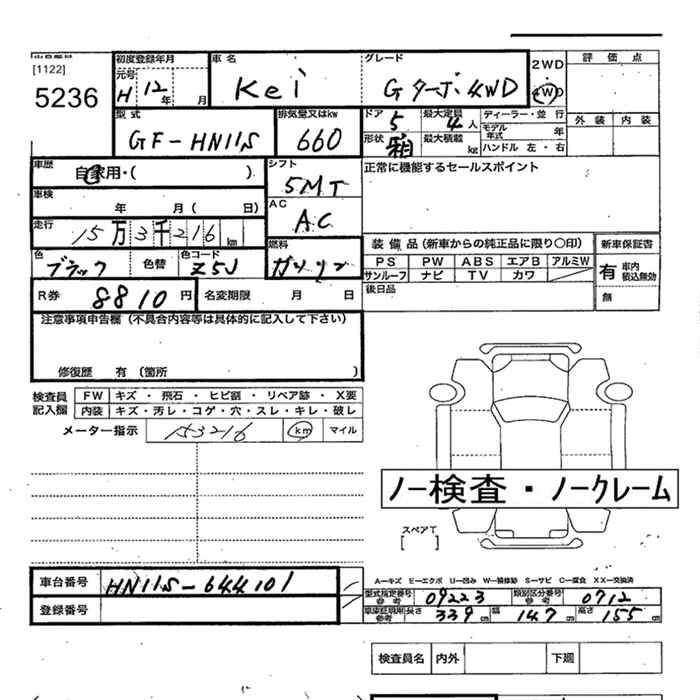 [1122]
5236
初度登録年月 車名 グレード 2WD 評価点
元号 H 12年 月 Kei Gターボ 4WD 4WD
型式 排気量又はkw ドア 5 最大定員 4人 ディーラー・並行 外装 内装
GF-HN11S 660 形状 箱 最大積載 kg モデル年式 年
ハンドル 左・右
車歴 自家用・( ) シフト 5MT 正常に機能するセールスポイント
車検 年 月( 日) AC AC
走行 15万3千216km 燃料 ガソリン 装備品(新車からの純正品に限り〇印) 新車保証書
色 ブラック 色替 色コード Z5J PS PW ABS エアB アルミW 有 車内積込無効
サンルーフ ナビ TV カワ
R券 8810円 名変期限 月 日 後日品 無
注意事項申告欄(不具合内容等は具体的に記入して下さい)
修復歴 有(箇所 )
検査員記入欄 FW キズ・飛石・ヒビ割・リペア跡・X要
内装 キズ・汚レ・コゲ・穴・スレ・キレ・破レ
メーター指示 153216 km マイル
ノー検査・ノークレーム
スペアT
[ ]
A-キズ E-エクボ U-凹み W-補修跡 S-サビ C-腐食 XX-交換済
車台番号 HN11S-644101 型式指定番号 参考 09223 類別区分番号 参考 0712
登録番号 車庫証明用 参考 長さ 339cm 幅 147cm 高さ 155cm
検査員名 内外 下廻